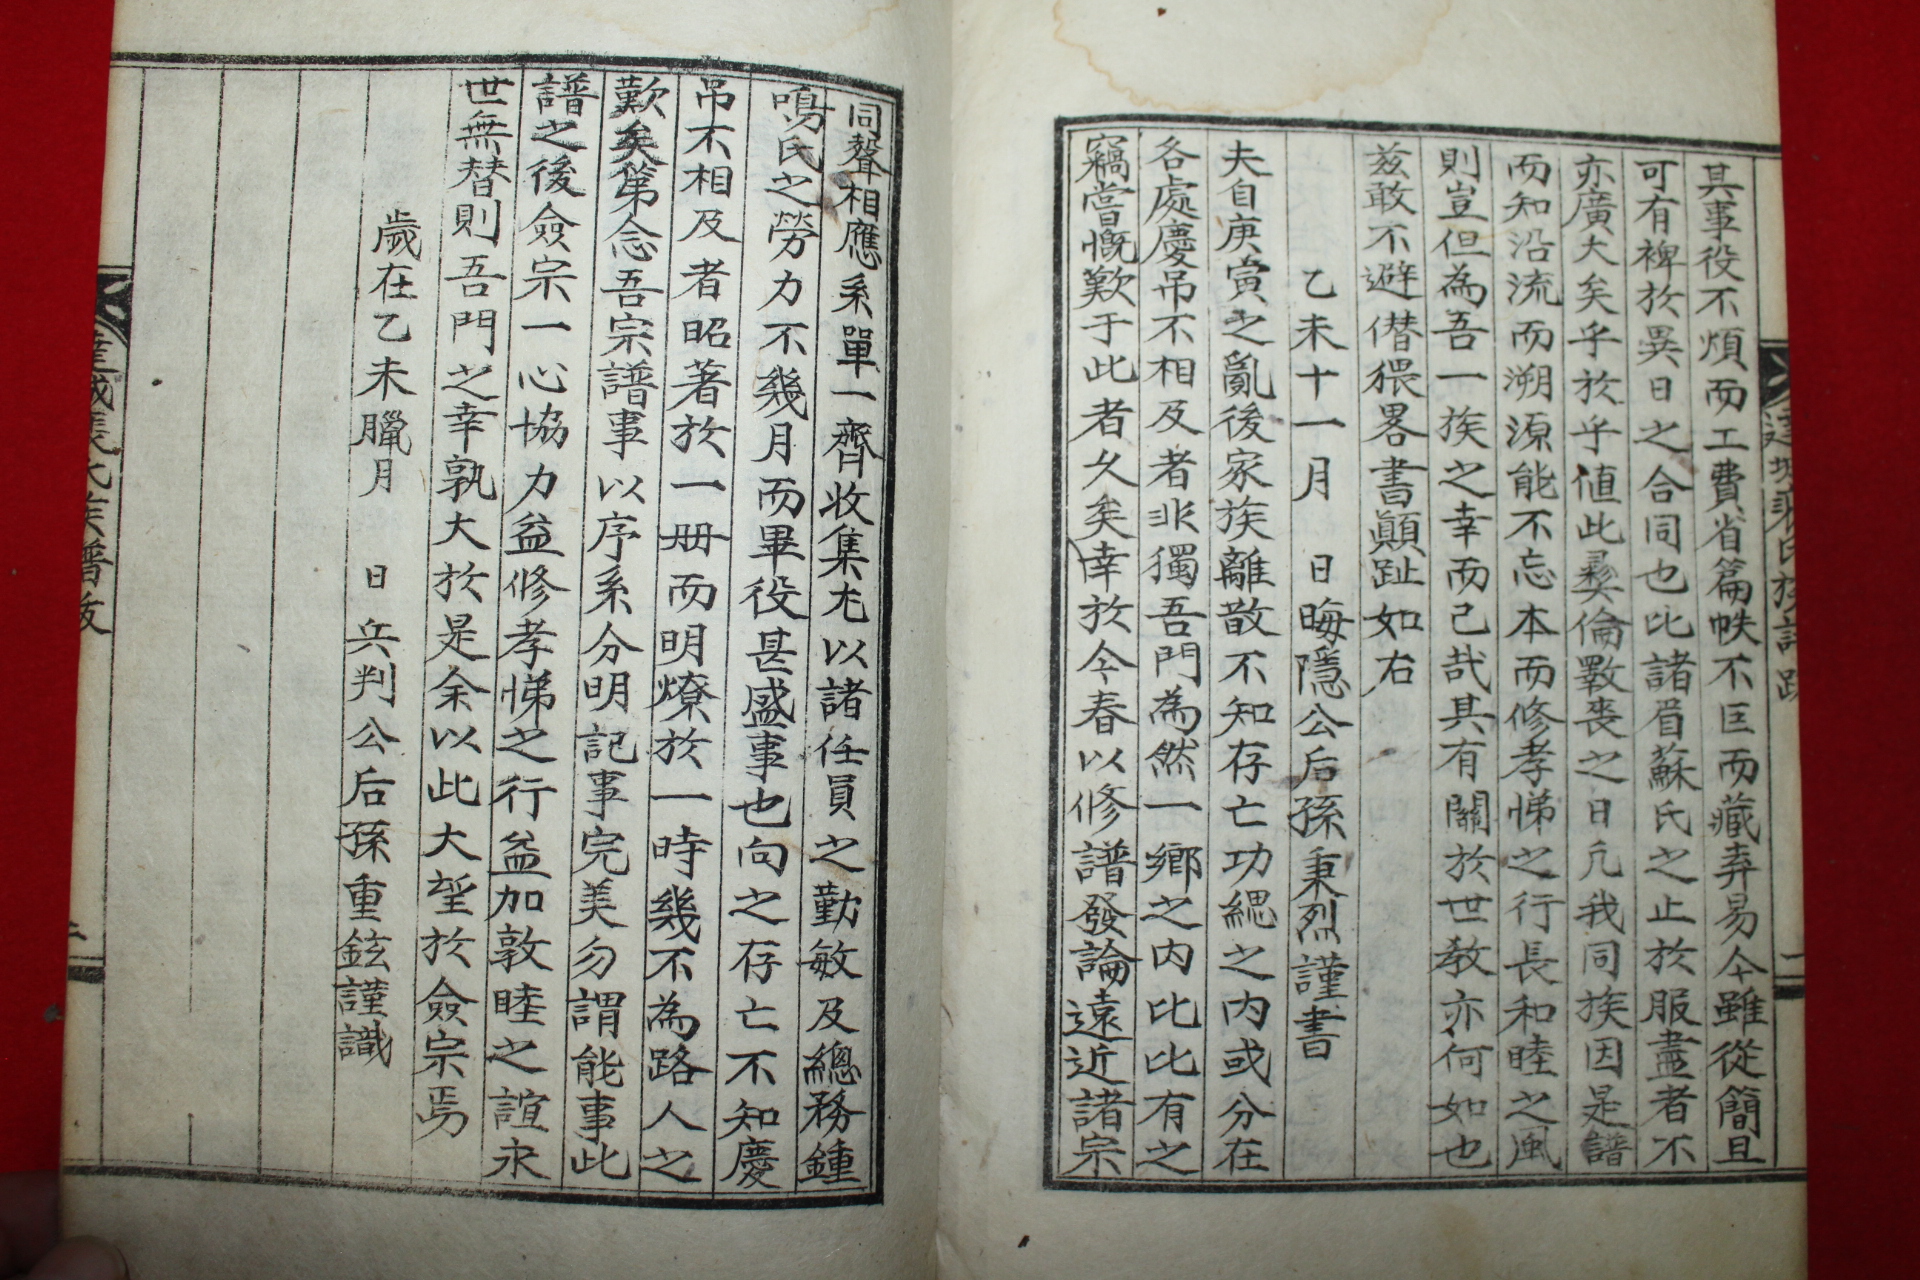 其事役不煩而工費省篇帙不匡而藏弆易今雖從簡且
可有裨於異日之合同也比諸眉蘇氏之止於服盡者不
亦廣大矣乎於乎值此彛倫斁喪之日凡我同族因是譜
而知沿流而溯源能不忘本而修孝悌之行長和睦之風
則豈但為吾一族之幸而已哉其有關於世教亦何如也
玆敢不避僣猥畧書顚趾如右
乙未十一月 日晦隱公后孫秉烈謹書
夫自庚寅之亂後家族離散不知存亡功緦之內或分在
各處慶吊不相及者非獨吾門為然一鄉之內比比有之
竊嘗慨歎于此者久矣幸於今春以修譜發論遠近諸宗
同聲相應系單一齊收集尤以諸任員之勤敏及總務鍾
鳴氏之勞力不幾月而畢役甚盛事也向之存亡不知慶
吊不相及者昭著於一册而明燎於一時幾不為路人之
歎矣第念吾宗譜事以序系分明記事完美勿謂能事此
譜之後僉宗一心協力益修孝悌之行益加敦睦之誼永
世無替則吾門之幸孰大於是余以此大望於僉宗焉
歲在乙未臘月 日兵判公后孫重鉉謹識